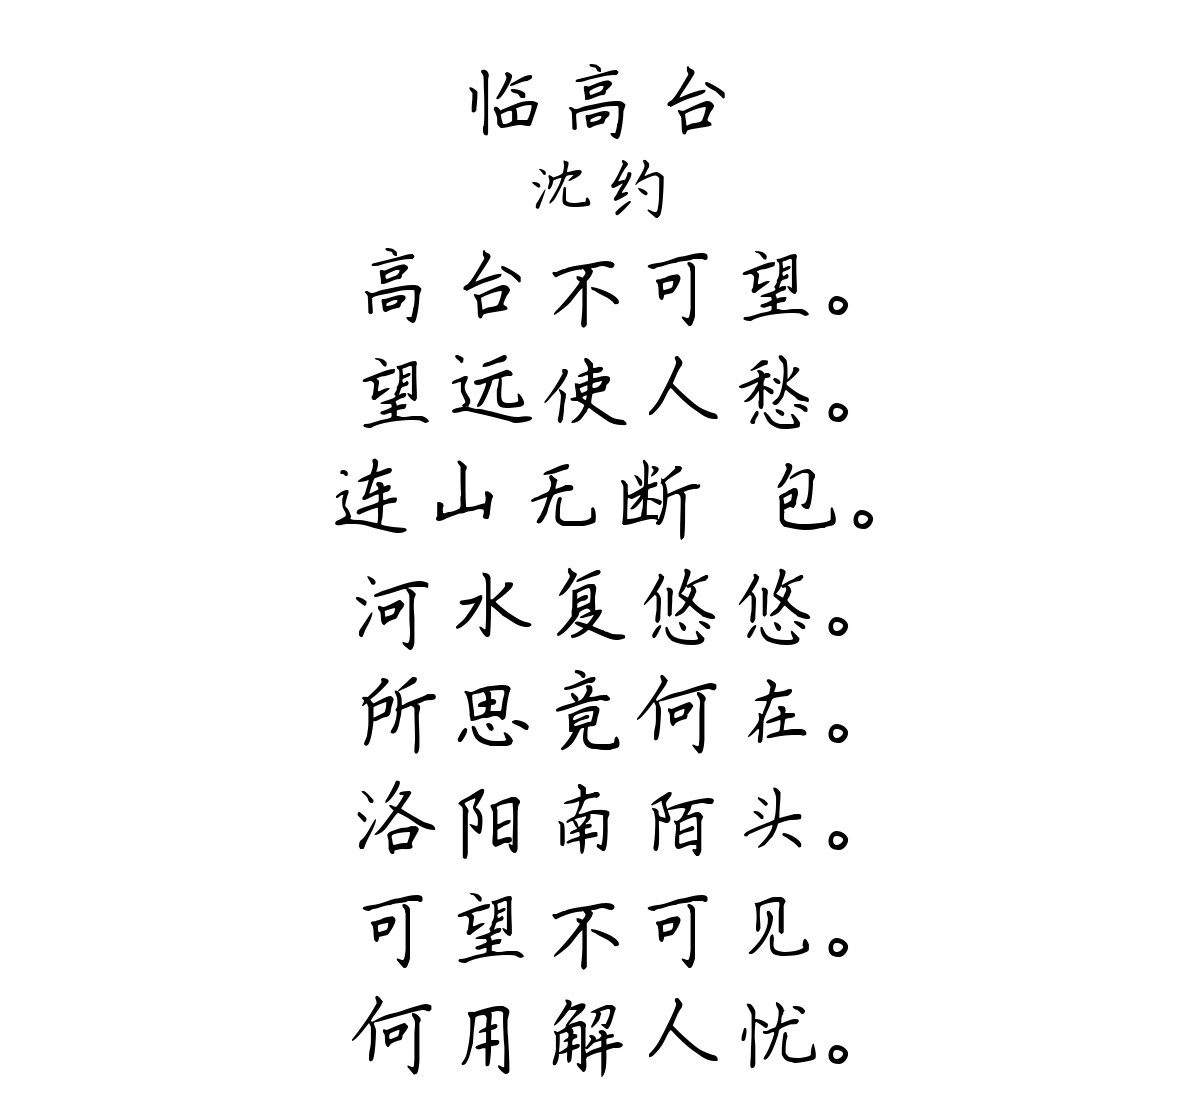 临高台
沈约
高台不可望。
望远使人愁。
连山无断 包。
河水复悠悠。
所思竟何在。
洛阳南陌头。
可望不可见。
何用解人忧。